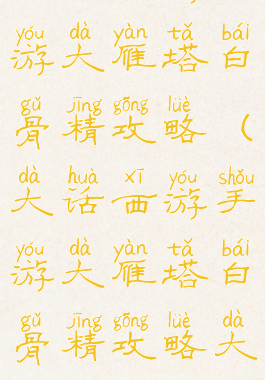 yóu dà yàn tǎ bái
游大雁塔白
gǔ jīng gōng lüè
骨精攻略（
dà huà xī yóu shǒu
大话西游手
yóu dà yàn tǎ bái
游大雁塔白
gǔ jīng gōng lüè dà
骨精攻略大